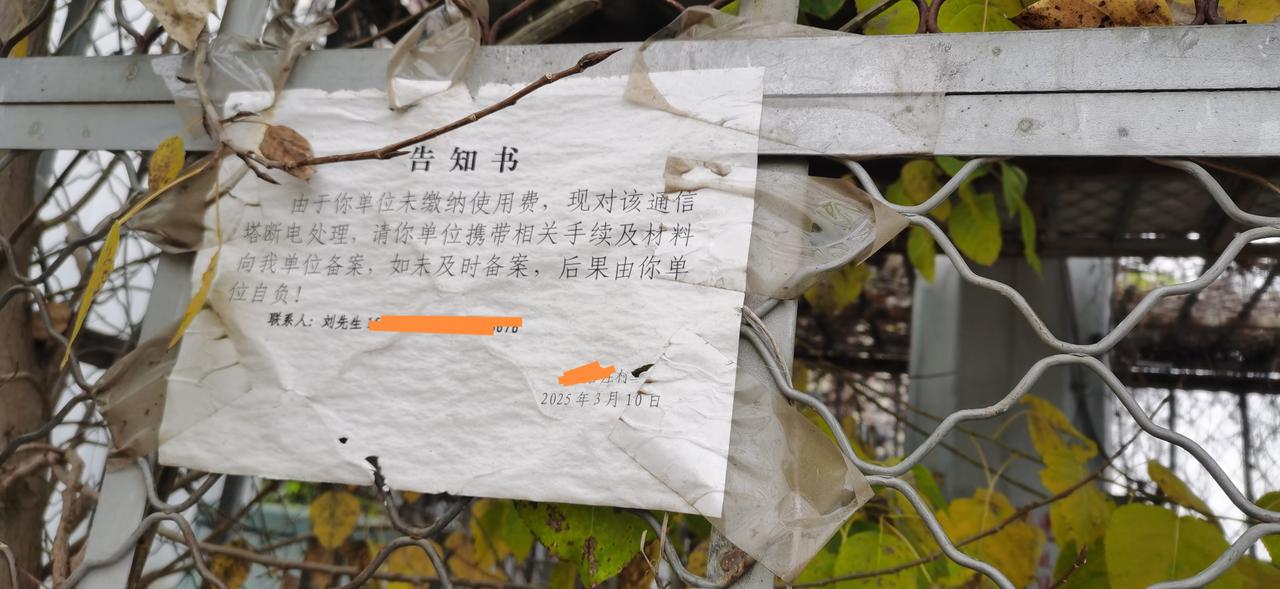 告知书
由于你单位未缴纳使用费，现对该通信
塔断电处理，请你单位携带相关手续及材料
向我单位备案，如未及时备案，后果由你单
位自负！
联系人：刘先生
2025年3月10日